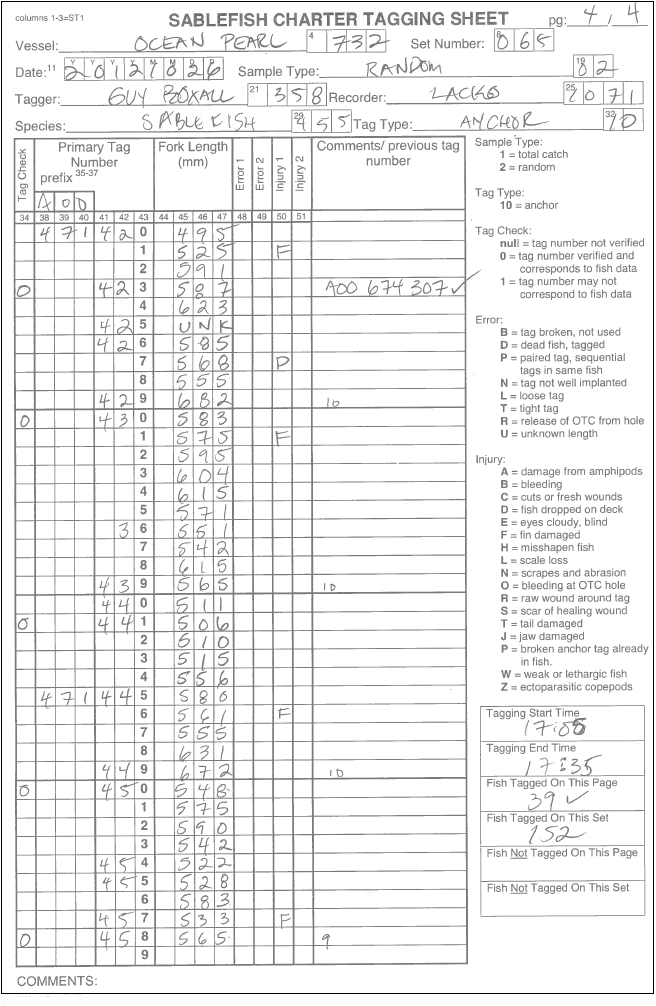 columns 1-3=ST1
SABLEFISH CHARTER TAGGING SHEET pg: 4 / 4
Vessel: OCEAN PEARL 4 732 Set Number: 8 065
Date: 11 Sample Type: RANDOM 19 02
Tagger: GUY BOXALL 21 358 Recorder: LACKO 25
Species: SABLEFISH 29 455 Tag Type: ANCHOR 32 10
Tag Check Primary Tag Number prefix 35-37 A 0 0 Fork Length (mm) Error 1 Error 2 Injury 1 Injury 2 Comments/ previous tag number
34 38 39 40 41 42 43 44 45 46 47 48 49 50 51
4 7 1 4 2 0 4 9 5
1 5 2 5 F
2 5 9 1
0 4 2 3 5 8 7 A00 674 307 ✓
4 6 2 3
4 2 5 U N K
4 2 6 5 8 5
7 5 6 8 P
8 5 5 5
4 2 9 6 8 2 10
0 4 3 0 5 8 3
1 5 7 5 F
2 5 9 5
3 6 0 4
4 6 1 5
5 5 7 1
3 6 5 5 1
7 5 4 2
8 6 1 5
4 3 9 5 6 5 10
4 4 0 5 1 1
0 4 4 1 5 0 6
2 5 1 0
3 5 1 5
4 5 5 6
4 7 1 4 4 5 5 8 0
6 5 6 1 F
7 5 5 5
8 6 3 1
4 4 9 6 7 2 10
0 4 5 0 5 4 8
1 5 7 5
2 5 9 0
3 5 4 2
4 5 4 5 2 2
4 5 5 5 2 8
6 5 8 3
4 5 7 5 3 3 F
0 4 5 8 5 6 5 9
9
COMMENTS:
Sample Type:
1 = total catch
2 = random
Tag Type:
10 = anchor
Tag Check:
null = tag number not verified
0 = tag number verified and
corresponds to fish data
1 = tag number may not
correspond to fish data
Error:
B = tag broken, not used
D = dead fish, tagged
P = paired tag, sequential
tags in same fish
N = tag not well implanted
L = loose tag
T = tight tag
R = release of OTC from hole
U = unknown length
Injury:
A = damage from amphipods
B = bleeding
C = cuts or fresh wounds
D = fish dropped on deck
E = eyes cloudy, blind
F = fin damaged
H = misshapen fish
L = scale loss
N = scrapes and abrasion
O = bleeding at OTC hole
R = raw wound around tag
S = scar of healing wound
T = tail damaged
J = jaw damaged
P = broken anchor tag already
in fish.
W = weak or lethargic fish
Z = ectoparasitic copepods
Tagging Start Time
17:05
Tagging End Time
17:35
Fish Tagged On This Page
39 ✓
Fish Tagged On This Set
152
Fish Not Tagged On This Page
Fish Not Tagged On This Set